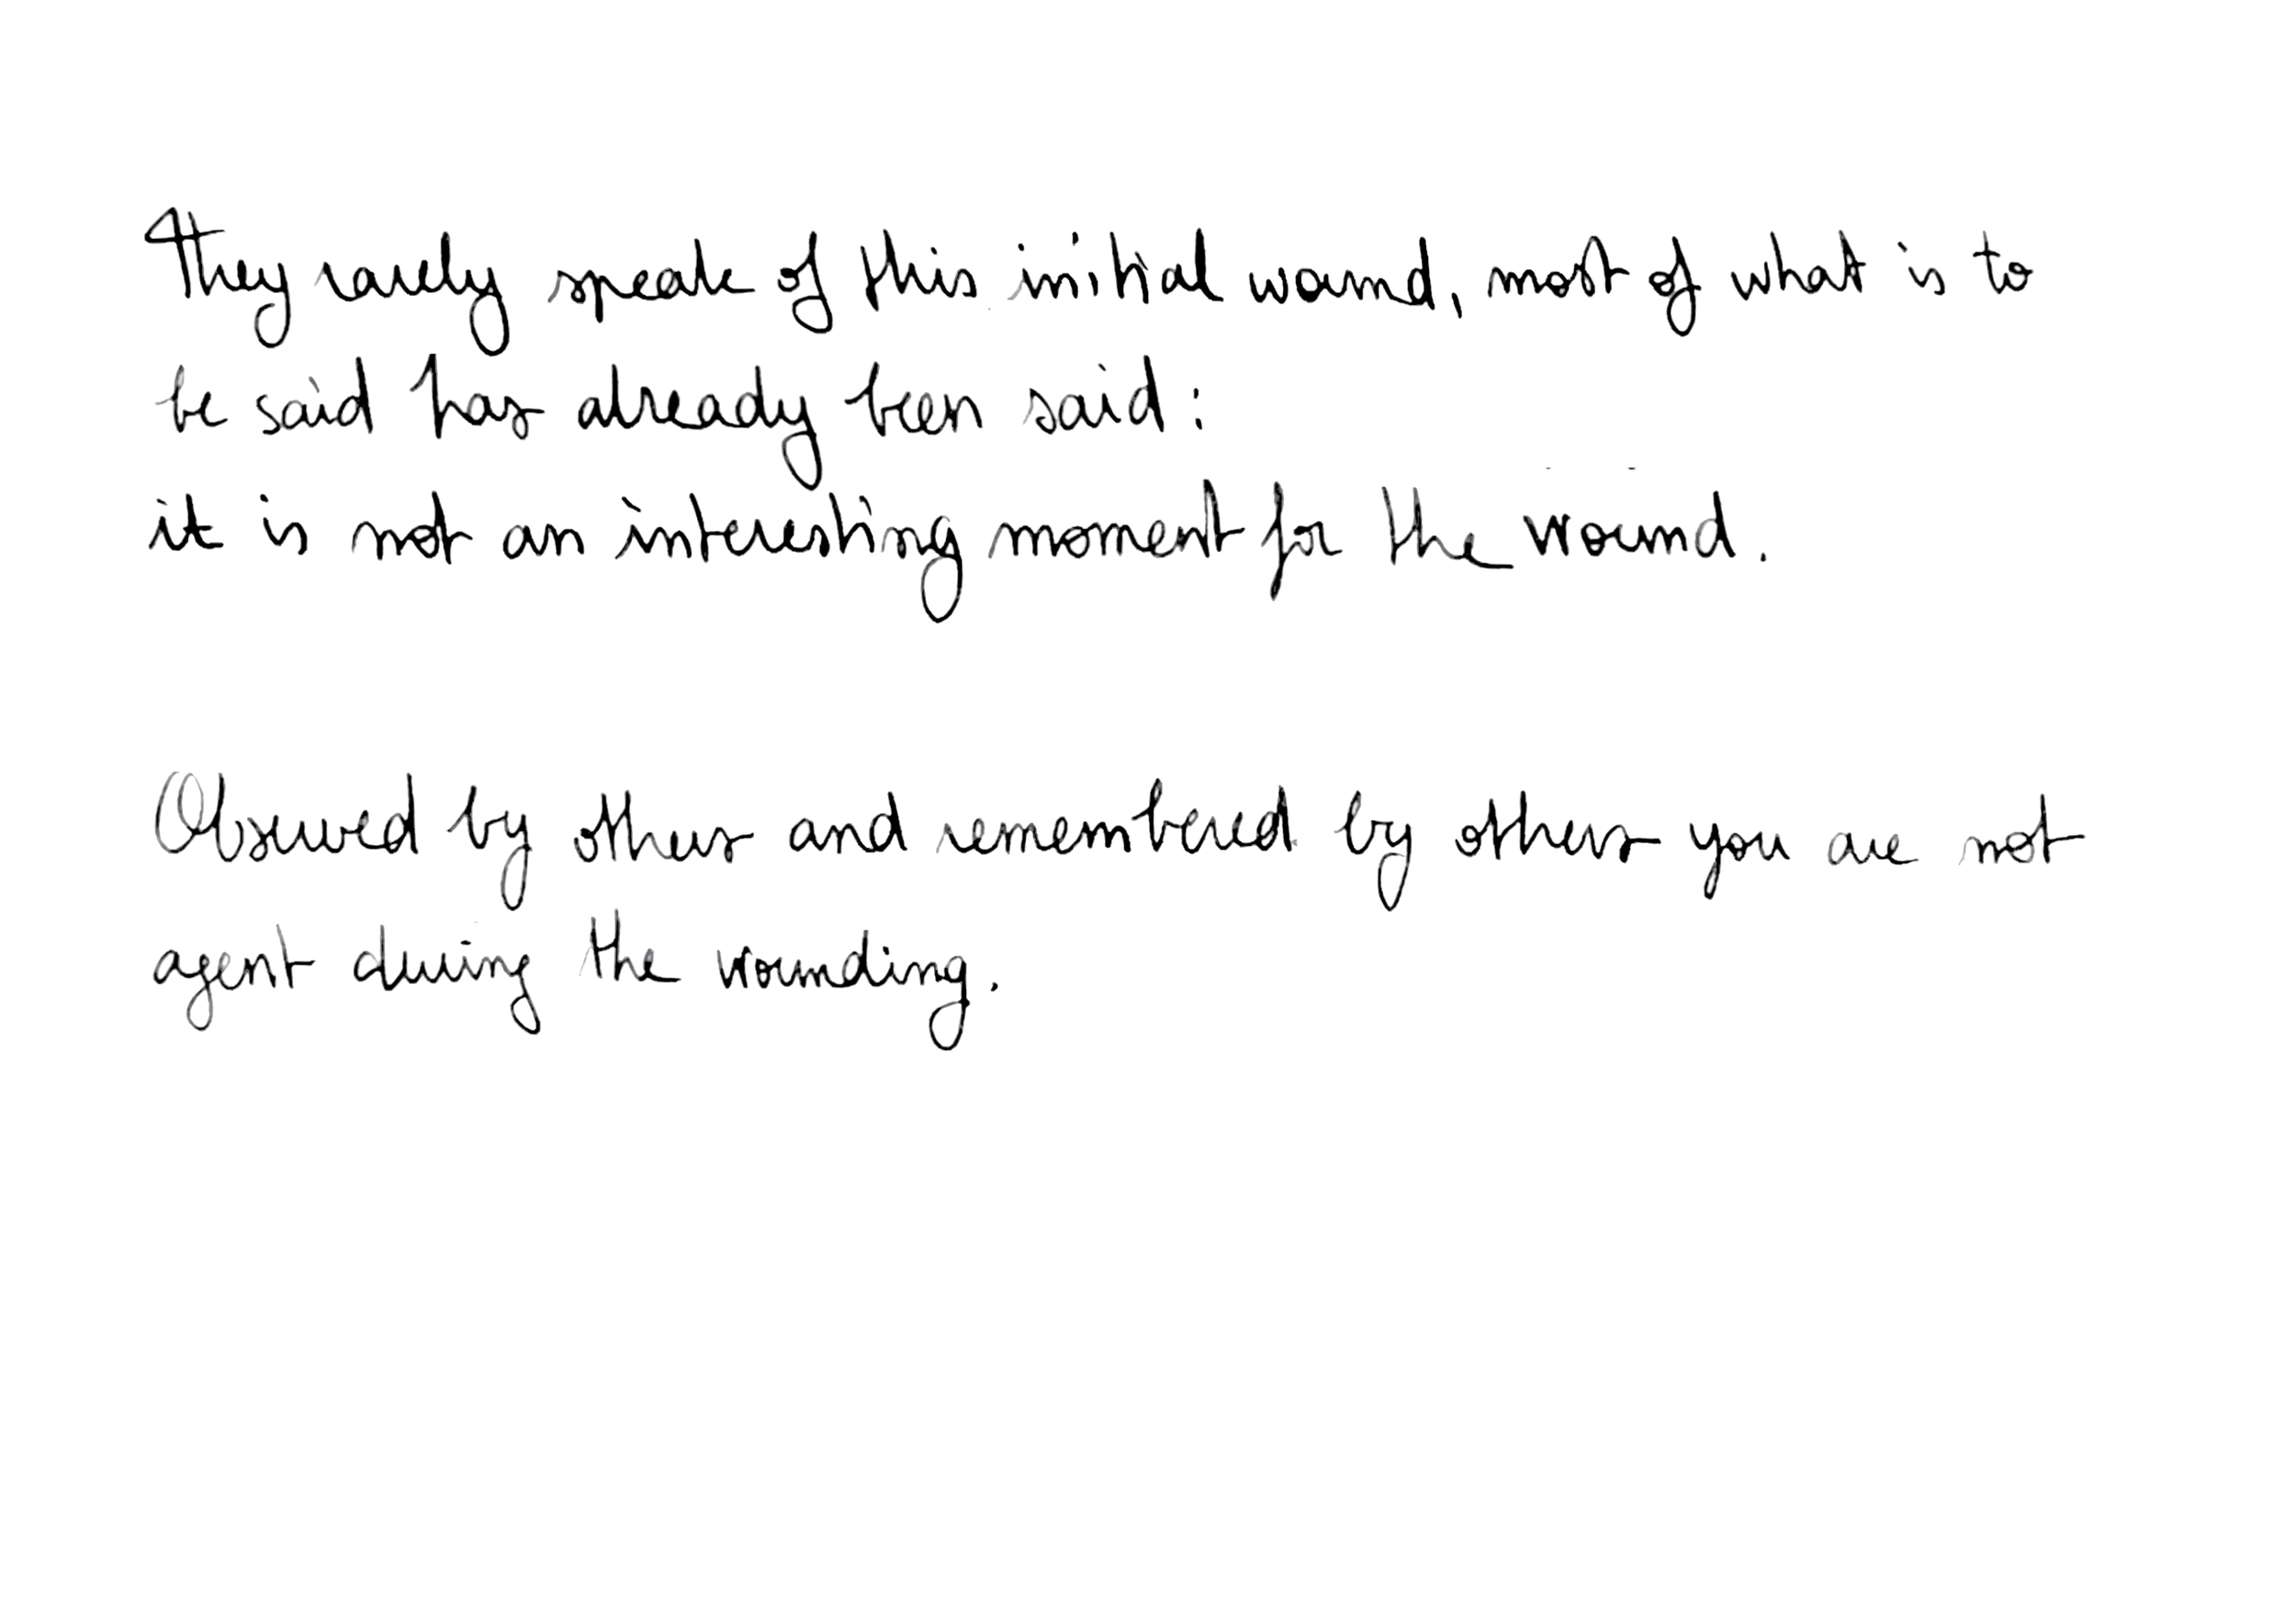 They rarely speak of this initial wound, most of what is to
be said has already been said:
it is not an interesting moment for the wound.
Observed by others and remembered by others you are not
agent during the wounding.